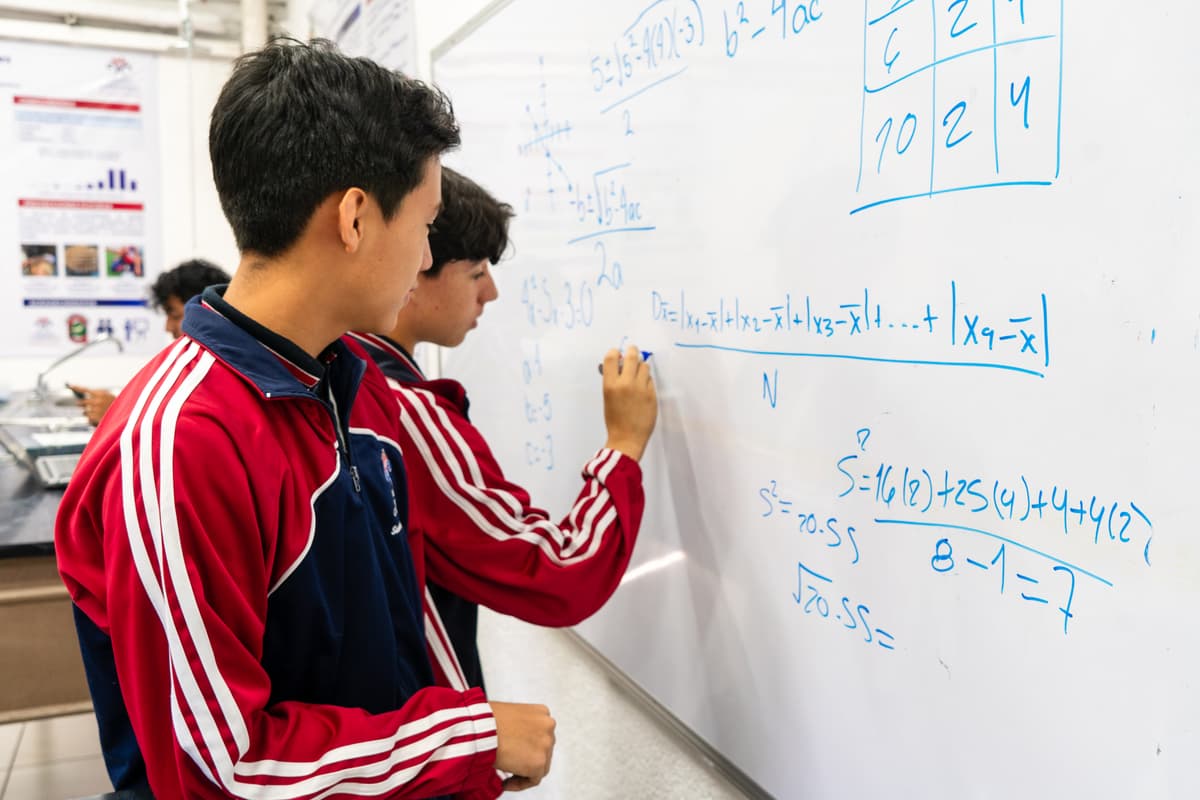 5±√5²-4(4)(-3)
2
b²-4ac
6 2 4
10 2 4
-b±√b²-4ac
2a
4x²-5x-3=0
a=4
b=-5
c=-3
Dx̅=|x₁-x̅|+|x₂-x̅|+|x₃-x̅|+...+|x₉-x̅|
N
S²=16(2)+25(4)+4+4(2)
8-1=7
S²=20.55
√20.55=